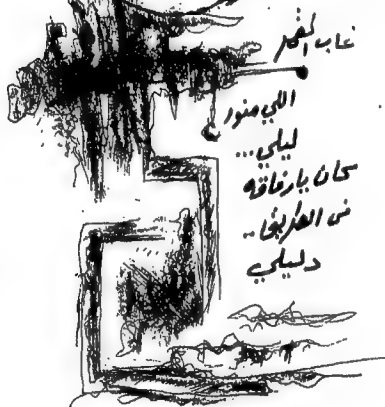 غاب القمر
اللي منور
ليلي...
كان يا رفاقه
في الطريق..
دليلي